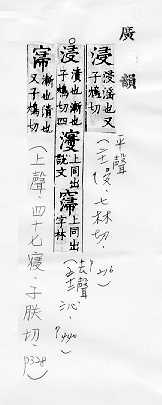 廣韻
浸 浸淫也又子鴆切
(平聲・二十一侵・七林切・p216)
浸 漬也漸也子鴆切四 寖 上同出說文 寖 上同出字林
(去聲・五十二沁・p440)
寖 漸也漬也又子鴆切
(上聲・四十七寑・子朕切・p328)